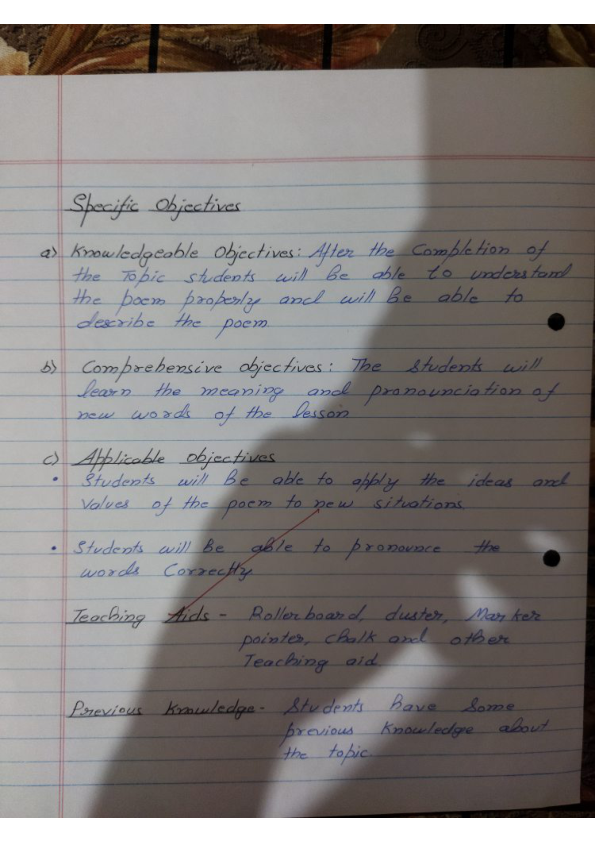 Specific Objectives
a) Knowledgeable Objectives: After the Completion of
the Topic students will be able to understand
the poem properly and will be able to
describe the poem.
b) Comprehensive objectives: The Students will
learn the meaning and pronounciation of
new words of the lesson
c) Applicable objectives
• Students will be able to apply the ideas and
values of the poem to new situations.
• Students will be able to pronounce the
words Correctly
Teaching Aids - Rollerboard, duster, Marker
pointer, chalk and other
Teaching aid.
Previous Knowledge - Students have some
previous knowledge about
the topic.